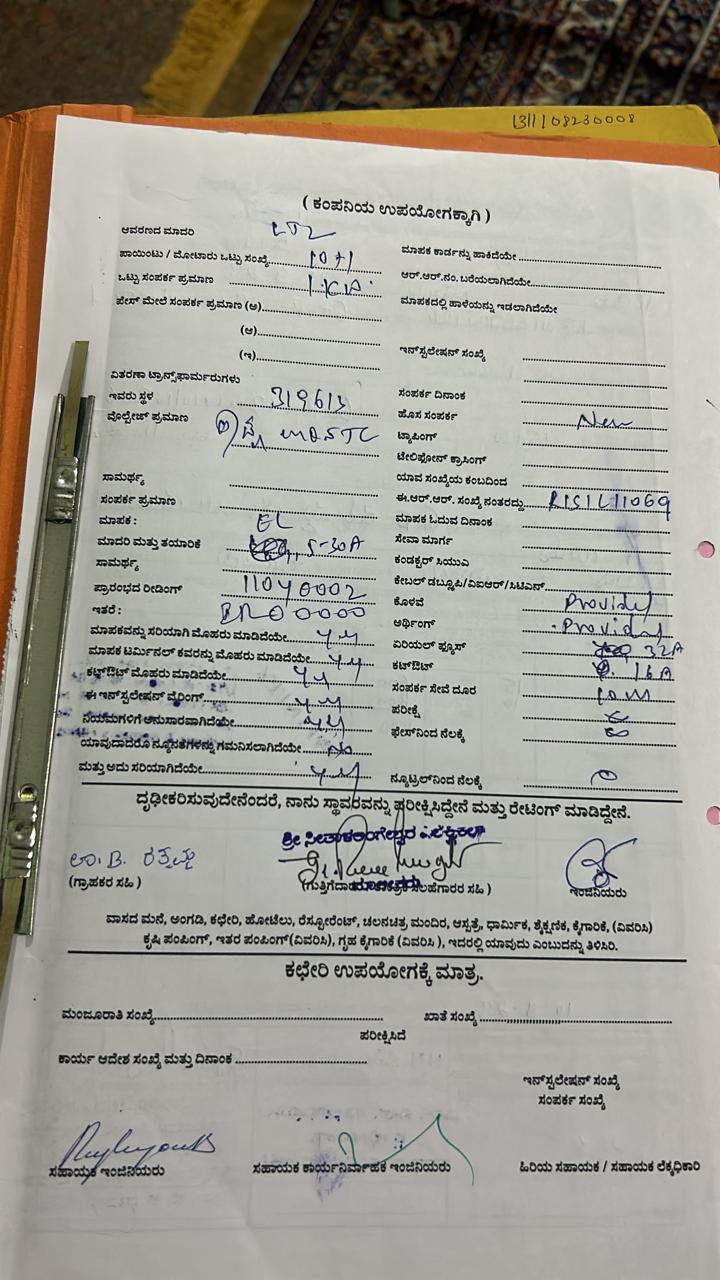 1311108230008
( ಕಂಪನಿಯ ಉಪಯೋಗಕ್ಕಾಗಿ )
ಆವರಣದ ಮಾದರಿ LT2
ಪಾಯಿಂಟು / ಮೋಟಾರು ಒಟ್ಟು ಸಂಖ್ಯೆ 10+1
ಒಟ್ಟು ಸಂಪರ್ಕ ಪ್ರಮಾಣ
ಫೇಸ್ ಮೇಲೆ ಸಂಪರ್ಕ ಪ್ರಮಾಣ (ಅ)
(ಆ)
(ಇ)
ವಿತರಣಾ ಟ್ರಾನ್ಸ್‌ಫಾರ್ಮರುಗಳು
ಇವರು ಸ್ಥಳ 319613
ವೋಲ್ಟೇಜ್ ಪ್ರಮಾಣ
ಸಾಮರ್ಥ್ಯ
ಸಂಪರ್ಕ ಪ್ರಮಾಣ
ಮಾಪಕ : EL
ಮಾದರಿ ಮತ್ತು ತಯಾರಿಕೆ 5-30A
ಸಾಮರ್ಥ್ಯ
ಪ್ರಾರಂಭದ ರೀಡಿಂಗ್ 11040002
ಇತರೆ :
ಮಾಪಕವನ್ನು ಸರಿಯಾಗಿ ಮೊಹರು ಮಾಡಿದೆಯೇ
ಮಾಪಕ ಟರ್ಮಿನಲ್ ಕವರನ್ನು ಮೊಹರು ಮಾಡಿದೆಯೇ
ಕಟ್‌ಔಟ್ ಮೊಹರು ಮಾಡಿದೆಯೇ
ಈ ಇನ್‌ಸ್ಟಲೇಷನ್ ವೈರಿಂಗ್
ನಿಯಮಗಳಿಗೆ ಅನುಸಾರವಾಗಿದೆಯೇ
ಯಾವುದಾದರೂ ನ್ಯೂನತೆಗಳನ್ನು ಗಮನಿಸಲಾಗಿದೆಯೇ No
ಮತ್ತು ಅದು ಸರಿಯಾಗಿದೆಯೇ
ಮಾಪಕ ಕಾರ್ಡನ್ನು ಹಾಕಿದೆಯೇ
ಆರ್.ಆರ್.ನಂ. ಬರೆಯಲಾಗಿದೆಯೇ
ಮಾಪಕದಲ್ಲಿ ಹಾಳೆಯನ್ನು ಇಡಲಾಗಿದೆಯೇ
ಇನ್‌ಸ್ಟಲೇಷನ್ ಸಂಖ್ಯೆ
ಸಂಪರ್ಕ ದಿನಾಂಕ
ಹೊಸ ಸಂಪರ್ಕ New
ಟ್ಯಾಪಿಂಗ್
ಟೆಲಿಫೋನ್ ಕ್ರಾಸಿಂಗ್
ಯಾವ ಸಂಖ್ಯೆಯ ಕಂಬದಿಂದ
ಈ.ಆರ್.ಆರ್. ಸಂಖ್ಯೆ ನಂತರದ್ದು
ಮಾಪಕ ಓದುವ ದಿನಾಂಕ
ಸೇವಾ ಮಾರ್ಗ
ಕಂಡಕ್ಟರ್ ಸಿಯುವಿ
ಕೇಬಲ್ ಡಬ್ಲ್ಯೂಪಿ/ವಿಐಆರ್/ಸಿಟಿಎಸ್
ಕೊಳವೆ Provided
ಅರ್ಥಿಂಗ್ Provided
ಏರಿಯಲ್ ಫ್ಯೂಸ್ 32A
ಕಟ್‌ಔಟ್ 16A
ಸಂಪರ್ಕ ಸೇವೆ ದೂರ 10m
ಪರೀಕ್ಷೆ
ಫೇಸ್‌ನಿಂದ ನೆಲಕ್ಕೆ
ನ್ಯೂಟ್ರಲ್‌ನಿಂದ ನೆಲಕ್ಕೆ
ದೃಢೀಕರಿಸುವುದೇನೆಂದರೆ, ನಾನು ಸ್ಥಾವರವನ್ನು ಪರೀಕ್ಷಿಸಿದ್ದೇನೆ ಮತ್ತು ರೇಟಿಂಗ್ ಮಾಡಿದ್ದೇನೆ.
(ಗ್ರಾಹಕರ ಸಹಿ )
ಸಲಹೆಗಾರರ ಸಹಿ )
ಇಂಜಿನಿಯರು
ವಾಸದ ಮನೆ, ಅಂಗಡಿ, ಕಛೇರಿ, ಹೋಟೆಲು, ರೆಸ್ಟೋರೆಂಟ್, ಚಲನಚಿತ್ರ ಮಂದಿರ, ಆಸ್ಪತ್ರೆ, ಧಾರ್ಮಿಕ, ಶೈಕ್ಷಣಿಕ, ಕೈಗಾರಿಕೆ, (ವಿವರಿಸಿ)
ಕೃಷಿ ಪಂಪಿಂಗ್, ಇತರ ಪಂಪಿಂಗ್(ವಿವರಿಸಿ), ಗೃಹ ಕೈಗಾರಿಕೆ (ವಿವರಿಸಿ ), ಇದರಲ್ಲಿ ಯಾವುದು ಎಂಬುದನ್ನು ತಿಳಿಸಿರಿ.
ಕಛೇರಿ ಉಪಯೋಗಕ್ಕೆ ಮಾತ್ರ.
ಮಂಜೂರಾತಿ ಸಂಖ್ಯೆ ಖಾತೆ ಸಂಖ್ಯೆ
ಪರೀಕ್ಷಿಸಿದೆ
ಕಾರ್ಯ ಆದೇಶ ಸಂಖ್ಯೆ ಮತ್ತು ದಿನಾಂಕ
ಇನ್‌ಸ್ಟಲೇಷನ್ ಸಂಖ್ಯೆ
ಸಂಪರ್ಕ ಸಂಖ್ಯೆ
ಸಹಾಯಕ ಇಂಜಿನಿಯರು ಸಹಾಯಕ ಕಾರ್ಯನಿರ್ವಾಹಕ ಇಂಜಿನಿಯರು ಹಿರಿಯ ಸಹಾಯಕ / ಸಹಾಯಕ ಲೆಕ್ಕಧಿಕಾರಿ